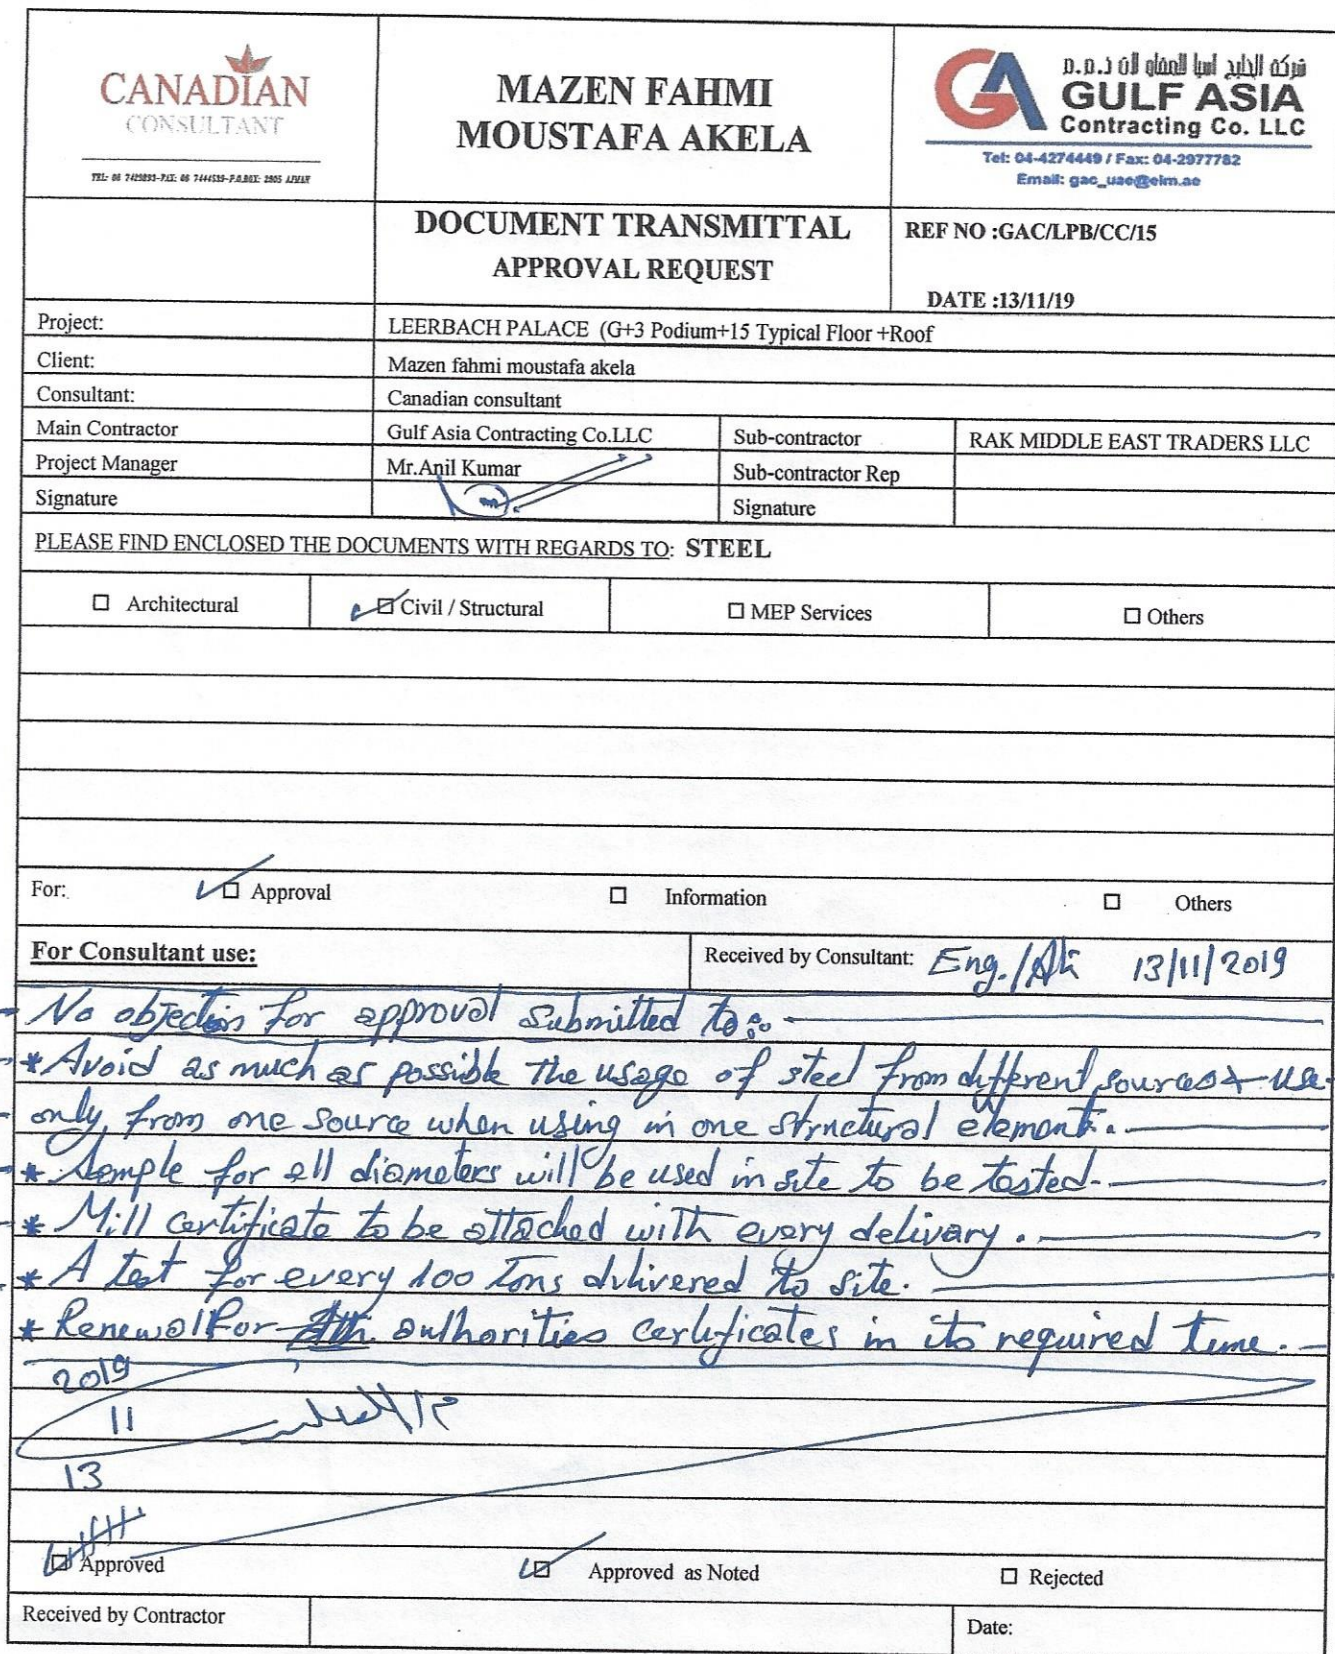 CANADIAN
CONSULTANT
TEL: 06 7429893-FAX: 06 7444539-P.O.BOX: 2905 AJMAN
MAZEN FAHMI
MOUSTAFA AKELA
GA
GULF ASIA
Contracting Co. LLC
Tel: 04-4274449 / Fax: 04-2977782
Email: gac_uae@eim.ae
DOCUMENT TRANSMITTAL
APPROVAL REQUEST
REF NO :GAC/LPB/CC/15
DATE :13/11/19
Project: LEERBACH PALACE (G+3 Podium+15 Typical Floor +Roof
Client: Mazen fahmi moustafa akela
Consultant: Canadian consultant
Main Contractor Gulf Asia Contracting Co.LLC Sub-contractor RAK MIDDLE EAST TRADERS LLC
Project Manager Mr.Anil Kumar Sub-contractor Rep
Signature Signature
PLEASE FIND ENCLOSED THE DOCUMENTS WITH REGARDS TO: STEEL
Architectural Civil / Structural MEP Services Others
For: Approval Information Others
For Consultant use: Received by Consultant: Eng./Ali 13/11/2019
No objection for approval submitted to:
* Avoid as much as possible the usage of steel from different sources & use
only from one source when using in one structural element.
* Sample for all diameters will be used in site to be tested.
* Mill certificate to be attached with every delivary.
* A test for every 100 Tons dilivered to site.
* Renewal for authorities certificates in its required time.
2019
11
13
Approved Approved as Noted Rejected
Received by Contractor Date: